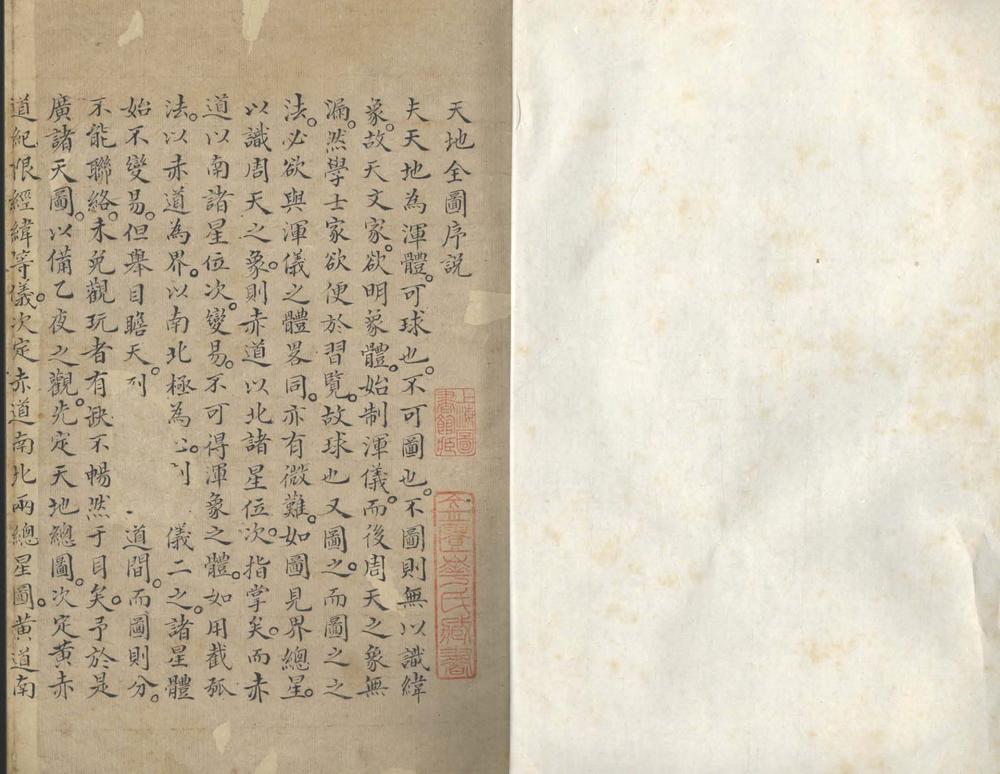 天地全圖序說
夫天地為渾體。可球也。不可圖也。不圖則無以識緯
象。故天文家。欲明象體。始制渾儀。而後周天之象無
漏。然學士家欲便於習覽。故球也又圖之。而圖之之
法。必欲與渾儀之體畧同。亦有微難。如圖見界總星。
以識周天之象。則赤道以北諸星位次。指掌矣。而赤
道以南諸星位次。變易。不可得渾象之體。如用截狐
法。以赤道為界。以南北極為心。儀二之。諸星體
始不變易。但舉目瞻天。道間。而圖則分。
不能聯絡。未免觀玩者有缺不暢然于目矣。予於是
廣諸天圖。以備乙夜之觀。先定天地總圖。次定黃赤
道紀限經緯等儀。次定赤道南北兩總星圖。黃道南
上海圖書館藏